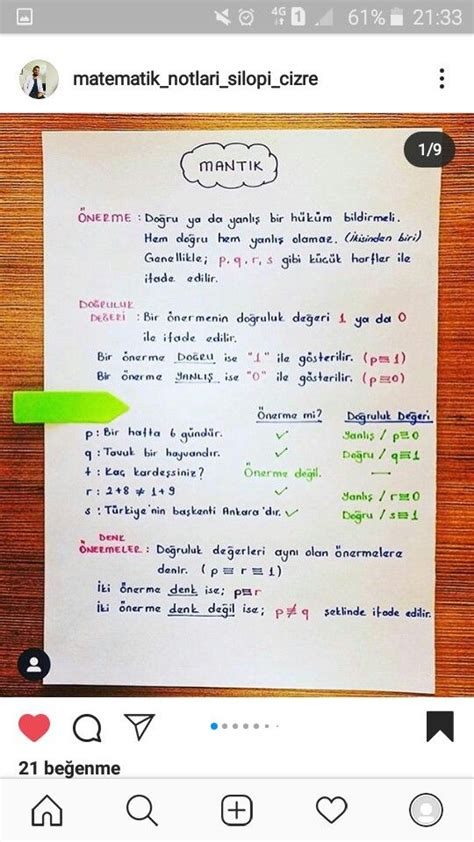 4G 1 61% 21:33
matematik_notlari_silopi_cizre
1/9
MANTIK
ÖNERME : Doğru ya da yanlış bir hüküm bildirmeli.
Hem doğru hem yanlış olamaz. (ikisinden biri)
Genellikle; p, q, r, s gibi küçük harfler ile
ifade edilir.
DOĞRULUK
DEĞERİ : Bir önermenin doğruluk değeri 1 ya da 0
ile ifade edilir.
Bir önerme DOĞRU ise "1" ile gösterilir. (p≡1)
Bir önerme YANLIŞ ise "0" ile gösterilir. (p≡0)
Önerme mi? Doğruluk Değeri
p : Bir hafta 6 gündür. ✓ Yanlış / p≡0
q : Tavuk bir hayvandır. ✓ Doğru / q≡1
t : Kaç kardeşsiniz? Önerme değil. —
r : 2+8 ≠ 1+9 ✓ Yanlış / r≡0
s : Türkiye'nin başkenti Ankara'dır. ✓ Doğru / s≡1
DENK
ÖNERMELER : Doğruluk değerleri aynı olan önermelere
denir. (p ≡ r ≡ 1)
İki önerme denk ise; p≡r
İki önerme denk değil ise; p≢q şeklinde ifade edilir.
21 beğenme